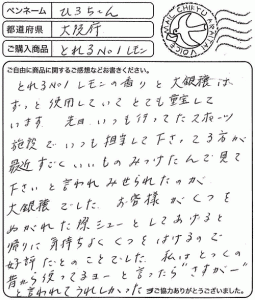 ペンネーム ひろちゃん
都道府県 大阪府
ご購入商品 とれるNo1レモン
ご自由に商品に関するご感想などお書きください。
とれるNo1レモンの香りと大銀穣は
ずっと使用していてとても重宝して
います 先日いつも行ってたスポーツ
施設でいつも担当して下さってる方が
最近すごくいいものみつけたんで見て
下さいと言われみせられたのが
大銀穣でした お客様がくつを
ぬがれた際シューとしてあげると
帰りに気持ちよくくつをはけるので
好評だとのことでした 私はとっくの
昔から使ってるヨーと言ったら"さすがー"
と言われてうれしかった
ご協力ありがとうございました。